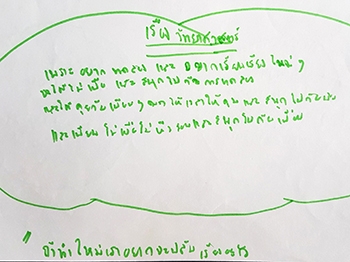 เรียน วิทยาศาสตร์
เพราะ อยาก ทดลอง และ อยากเรียนเรื่อง ใหม่ ๆ
จะได้ไม่ เบื่อ และ สนุกไปกับการทดลอง
และได้ คุยกับเพื่อน ๆ ให้เวลาให้คุย และ สนุกไปกับ
และเพื่อน ไม่เบื่อไม่ และสนุกไปกับเพื่อน
"ถ้าทำใหม่เราอยากจะปรับ